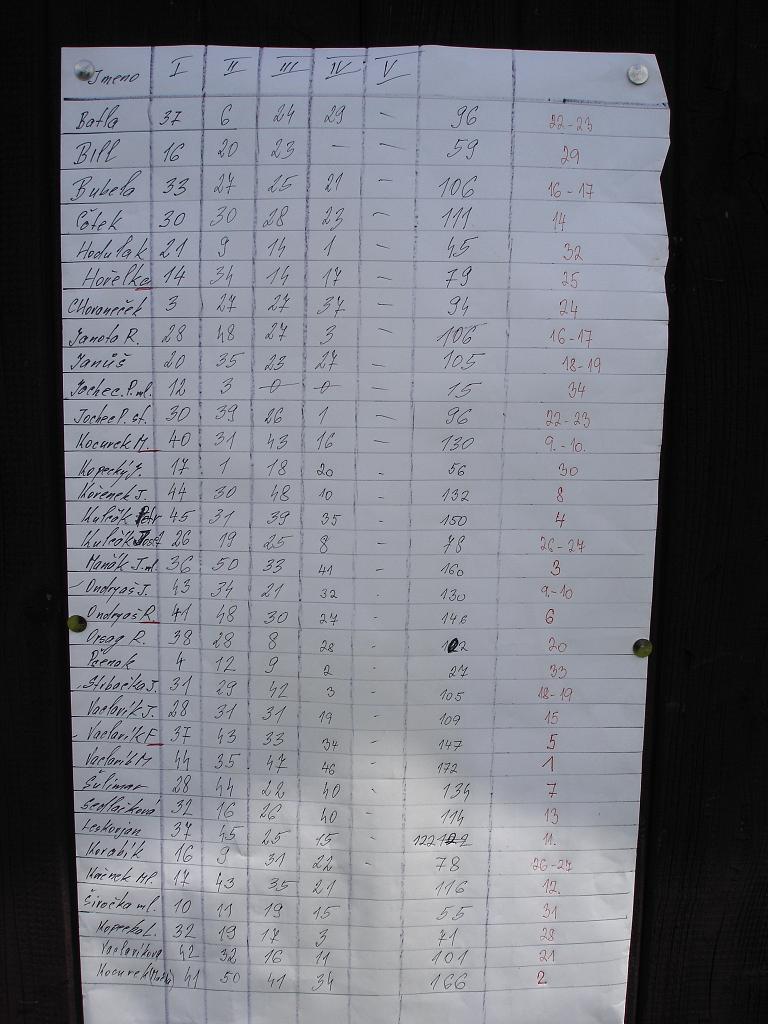 Jmeno I II III IV V
Batla 37 6 24 29 — 96 22-23
Bill 16 20 23 — — 59 29
Bubela 33 27 25 21 — 106 16-17
Cötek 30 30 28 23 — 111 14
Hodulak 21 9 14 1 — 45 32
Hořelka 14 34 14 17 — 79 25
CHovaneček 3 27 27 37 — 94 24
Janota R. 28 48 27 3 — 106 16-17
Janůš 20 35 23 27 — 105 18-19
Jochec P. ml. 12 3 0 0 — 15 34
Jochec P. st. 30 39 26 1 — 96 22-23
Kocurek M. 40 31 43 16 — 130 9.-10.
Kopecký J. 17 1 18 20 - 56 30
Kořenek J. 44 30 48 10 - 132 8
Kulčák Petr 45 31 39 35 - 150 4
Kulčák Josef 26 19 25 8 - 78 26-27
Maňák J. ml 36 50 33 41 - 160 3
Ondryáš J. 43 34 21 32 . 130 9-10
Ondryáš R. 41 48 30 27 - 146 6
Orsag R. 38 28 8 28 - 102 20
4 12 9 2 - 27 33
Strbačka J. 31 29 42 3 - 105 18-19
Vaclavik J. 28 31 31 19 - 109 15
Vaclavik F. 37 43 33 34 - 147 5
Vaclavik M 44 35 47 46 - 172 1
Šulimar 28 44 22 40 - 134 7
Sedlačková 32 16 26 40 - 114 13
Leskovjan 37 45 25 15 - 122 11.
Korabik 16 9 31 22 - 78 26-27
Kořenek Ml. 17 43 35 21 116 12.
Širočka ml. 10 11 19 15 55 31
Kopecka L. 32 19 17 3 71 28
Vaclavikova 42 32 16 11 101 21
Kocurek 41 50 41 34 166 2